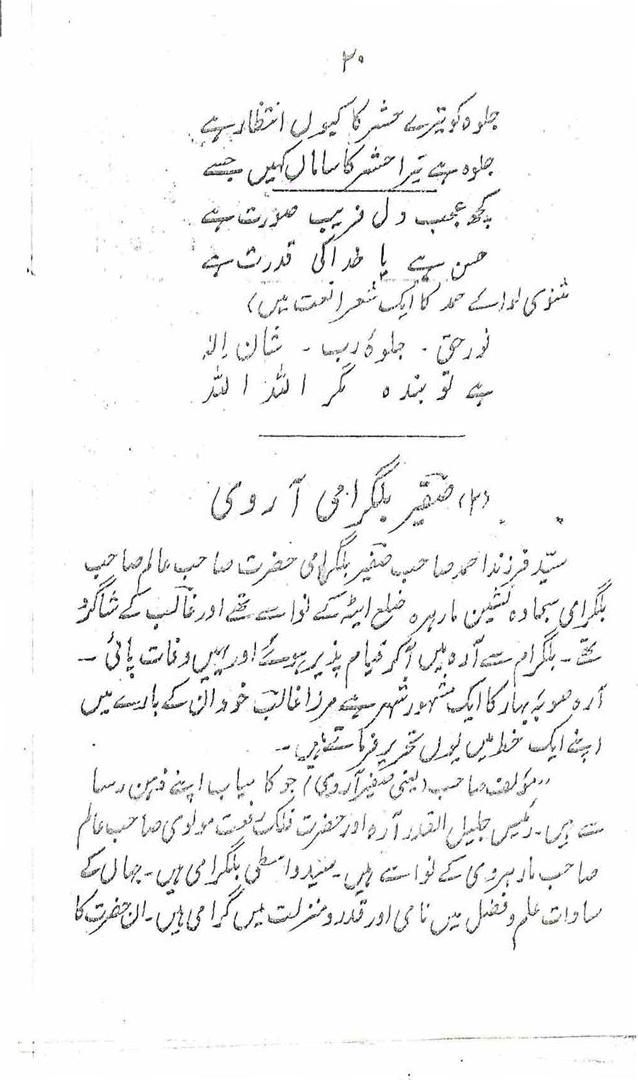 ۲۰
جلوہ کو تیرے حشر کا کیوں انتظار ہے
جلوہ ہے تیرا حشر کا ساماں کہیں جسے
کچھ عجب دل فریب صورت ہے
حسن ہے یا خدا کی قدرت ہے
مثنوی لوائے حمد کا ایک شعر نعت میں)
نور حق ۔ جلوۂ رب ۔ شان الہ
ہے تو بندہ مگر اللہ اللہ
(۲) صفیر بلگرامی آروی
سید فرزند احمد صاحب صفیر بلگرامی حضرت صاحب عالم صاحب
بلگرامی سجادہ نشین مارہرہ ضلع ایٹہ کے نواسے تھے اور غالب کے شاگرد
تھے ۔ بلگرام سے آرہ میں آکر قیام پذیر ہوئے اور یہیں وفات پائی ۔
آرہ صوبہ بہار کا ایک مشہور شہر ہے مرزا غالب خود ان کے بارے میں
اپنے ایک خط میں یوں تحریر فرماتے ہیں ۔
"مؤلف صاحب (یعنی صفیر آروی) جو کامیاب اپنے ذہن رسا
سے ہیں ۔ رئیس جلیل القدر آرہ اور حضرت فلک رفعت مولوی صاحب عالم
صاحب مارہروی کے نواسے ہیں ۔ سید واسطی بلگرامی ہیں ۔ جہاں کے
سادات علم و فضل میں نامی اور قدر و منزلت میں گرامی ہیں ۔ ان حضرت کا